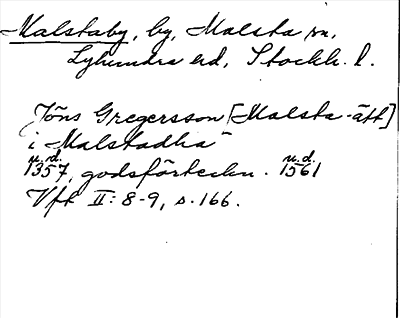 Malstaby, by, Malsta sn,
Lyhundra hd, Stockh. l.
Jöns Gregersson [Malsta-ätt]
i Malstadha"
u.d. u.d.
1357, godsförteckn. 1561
Vfk II: 8-9, s. 166.